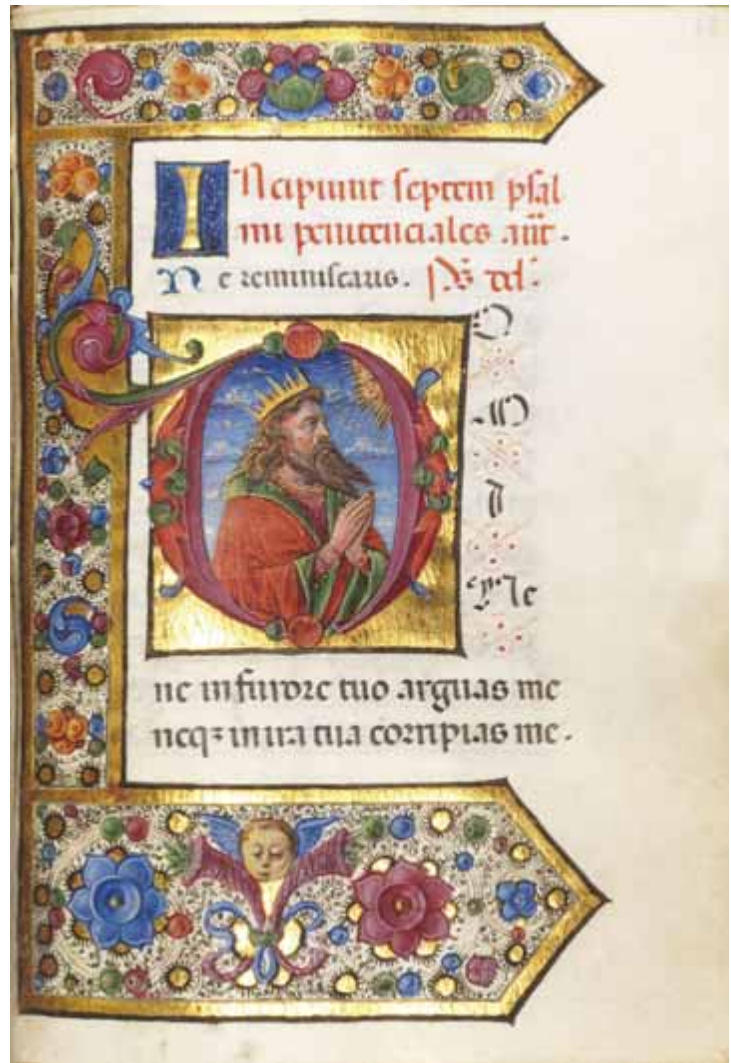 INcipiunt septem psal
mi penitenciales añt.
Ne reminiscaris. ps
O
M
I
Ne
ne in furore tuo arguas me
neqз in ira tua corripias me.